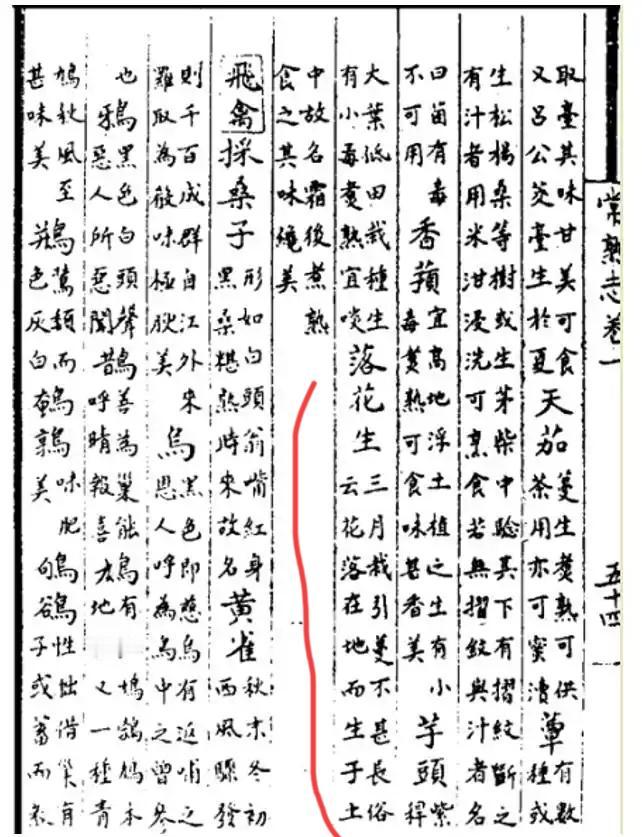 常熟志卷一
五十四
取臺其味甘美可食
又呂公茭臺生於夏
天茄
蔓生煮熟可供
茶用亦可蜜漬
蕈
有數
種或
生松楊桑等樹或生茅柴中驗其下有摺紋斷之
有汁者用米泔浸洗可烹食若無摺紋與汁者名
曰菌有毒
不可用
香蕷
宜高地浮土植之生有小
毒煑熟可食味甚香美
芋頭
紫
稈
大葉低田栽種生
有小毒煑熟宜啖
落花生
三月栽引蔓不甚長俗
云花落在地而生子土
中故名霜後煮熟
食之其味絕美
飛禽
採桑子
形如白頭翁嘴紅身
黑桑椹熟時來故名
黃雀
秋末冬初
西風驟發
則千百成群自江外來
羅取為餚味極肥美
烏
黑色即慈烏有返哺之
恩人呼為鳥中之曾參
也
鴉
黑色白頭聲
惡人所惡聞
鵲
善為巢能
呼晴報喜
有
地
鳩
鴿鳩本
又一種青
鳩秋風至
甚味美
類而
色灰白
鵪鶉
味肥
美
鴝鵒
性拙借巢有
子或蓄而